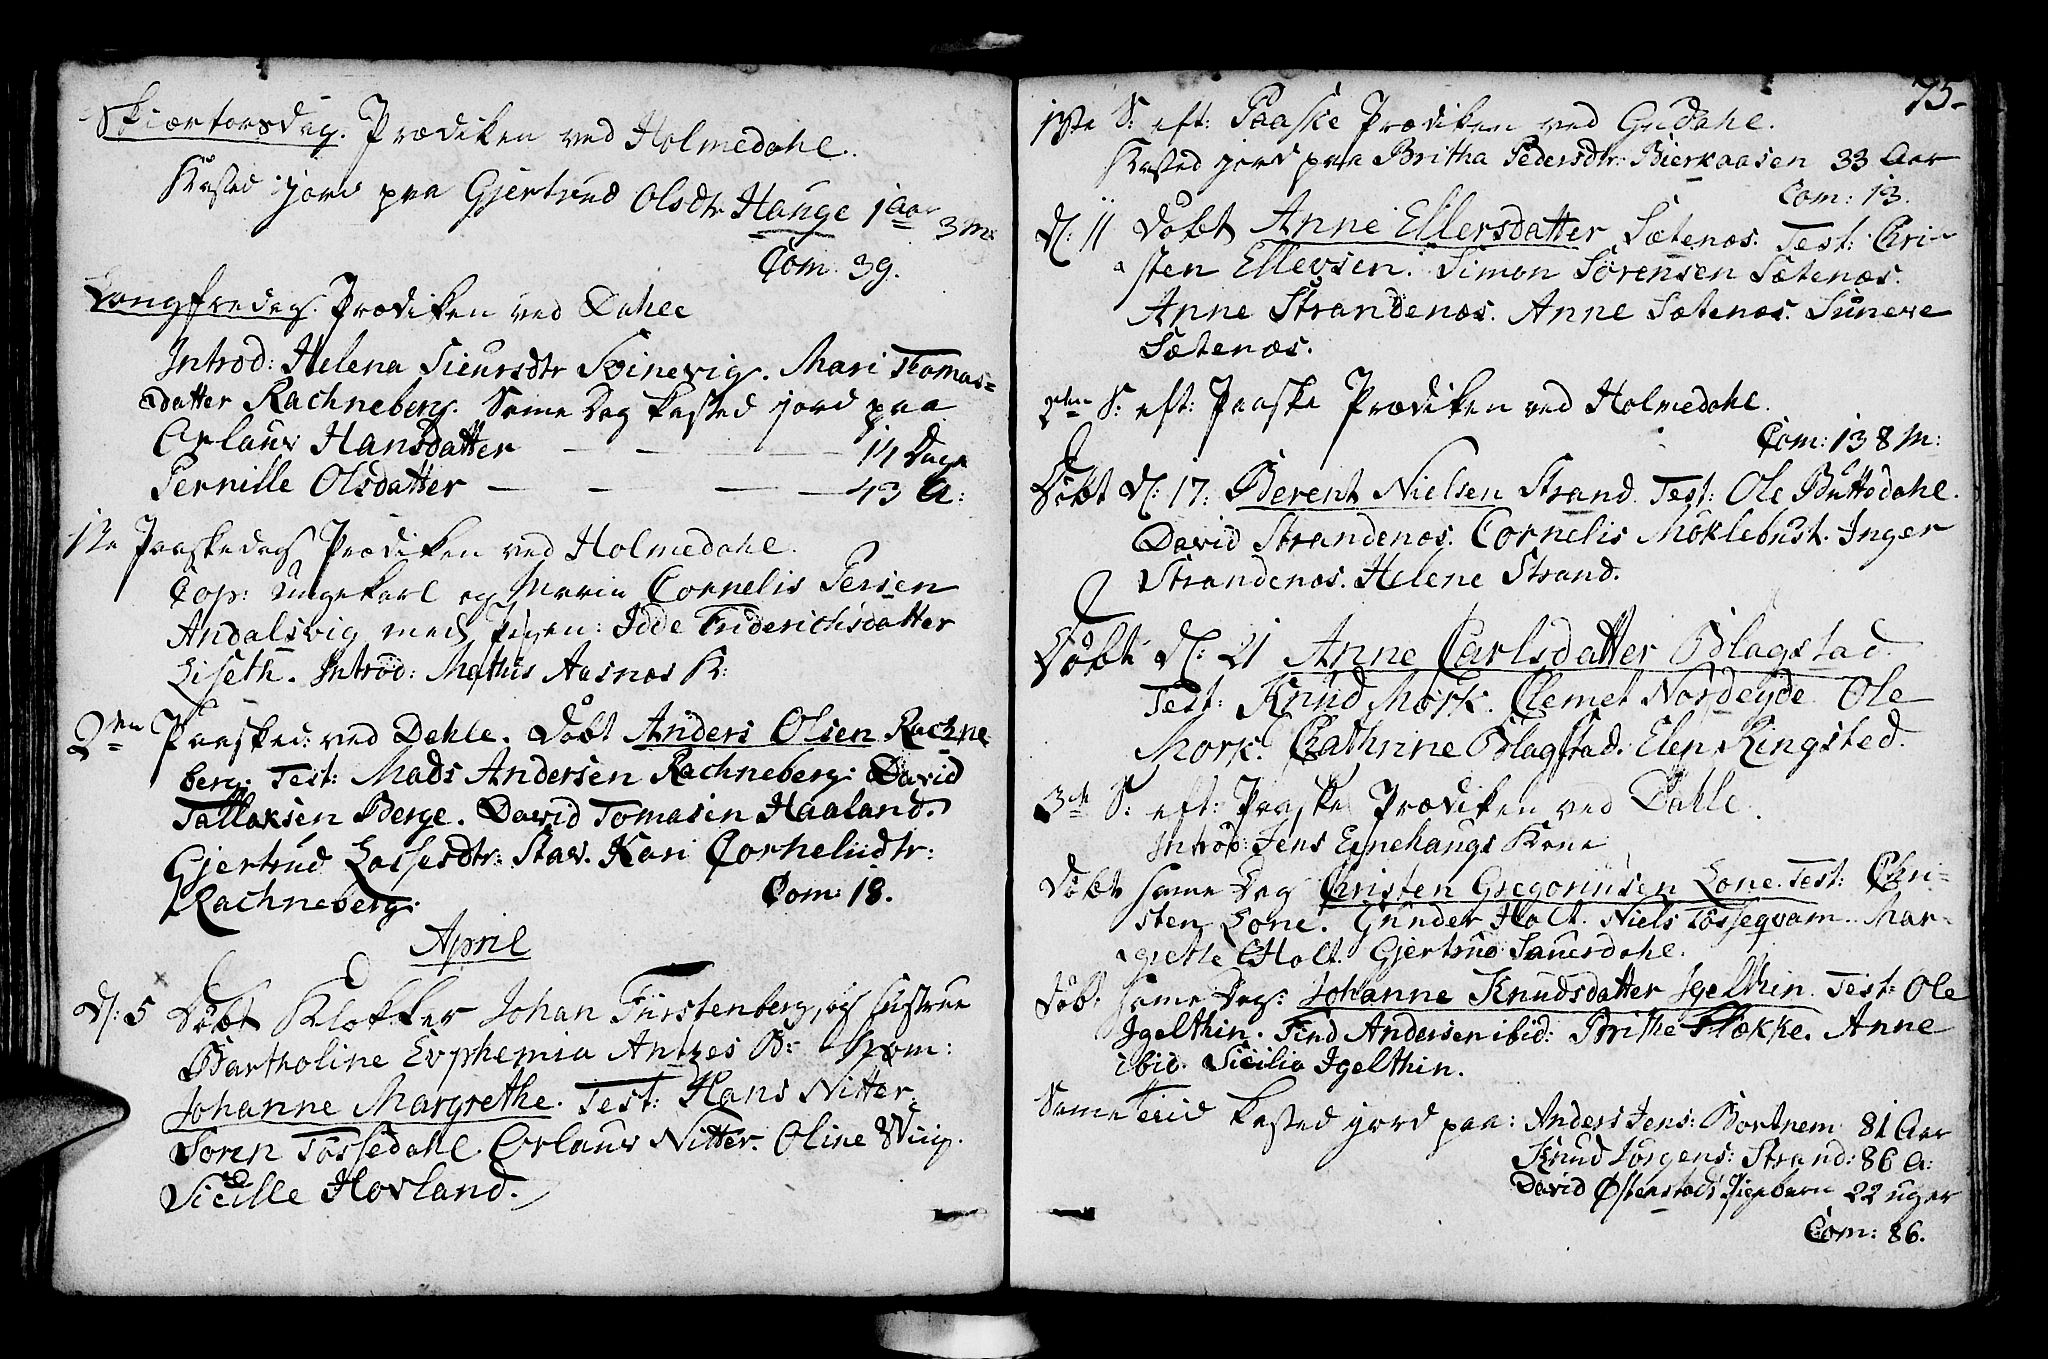 Skiærtorsdag. Prædiken ved Holmedahl.
Kasted jord paa Gjertrud Olsdtr Hauge 1 Aar 3 M:
Com: 39.
Langfredag. Prædiken ved Dahle
Introd: Helena Siursdtr Svinevig. Mari Thomas=
datter Rachneberg. Same Dag kasted jord paa
Orlaug Hansdatter — — — — 14 Dage
Pernille Olsdatter — — — — 43 A:
1ste Paaskedag Prædiken ved Holmedahl.
Cop: Ungekarl og Cornelis Persen
Andalsvig med Pigen: Idde Friderichsdatter
Liseth. Introd: Mathis Aasnæs K:
2den Paasked: ved Dahle. Døbt Anders Olsen Rachne
berg. Test: Mads Andersen Rachneberg: David
Tallaksen Berge. David Tomasen Haaland.
Gjertrud Lassesdtr: Stav. Kari Corneliidtr:
Rachneberg.
Com: 18.
April
D: 5 Døbt Klokker Johan Fürstenberg, og Hustrue
Bartholine Evphemia Antzes B:
Johanne Margrethe. Test: Hans Nitter.
Søren Tossedahl. Orlaug Nitter. Oline Viig.
Sicille Hovland.
75.
1ste S: eft: Paaske Prædiken ved Gudahl.
Kasted jord paa Britha Pedersdtr: Bierkaasen 33 Aar
Com: 13.
D: 11 Døbt Anne Ellersdatter Sætenæs. Test: Chri-
sten Ellevsen. Simon Sørensen Sætenæs.
Anne Strandenæs. Anne Sætenæs. Suneve
Sætenæs.
2den S: eft: Paaske Prædiken ved Holmedahl.
Com: 138 M:
Døbt D: 17: Berent Nielsen Strand. Test: Ole Buttedahl.
David Strandenæs. Cornelis Møklebust. Inger
Strandenæs. Helene Strand.
Døbt D: 21 Anne Carlsdatter Blagstad.
Test: Knud Mørk. Clemet Nordeyde. Ole
Mork. Chathrine Blagstad. Elen Ringsted.
3die S: eft: Paaske Prædiken ved Dahle.
Introd: Jens Kone
Døbt same Dag Christen Gregoriusen Lone. Test: Chri-
sten Lone. Gunder Holt. Niels Tosseqvam. Mar-
grethe Holt. Gjertrud Sauesdahl.
Døbt same Dag: Johanne Knudsdatter Igelthin. Test: Ole
Igelthin. Find Andersen ibid: Brithe Flække. Anne
ibid. Sicilia Igelthin.
Same kasted jord paa: Anders Jens: Bortnem 81 Aar
Knud Jørgens: Strand: 86 A:
David Østenstads Pigebarn 22 uger
Com: 86.